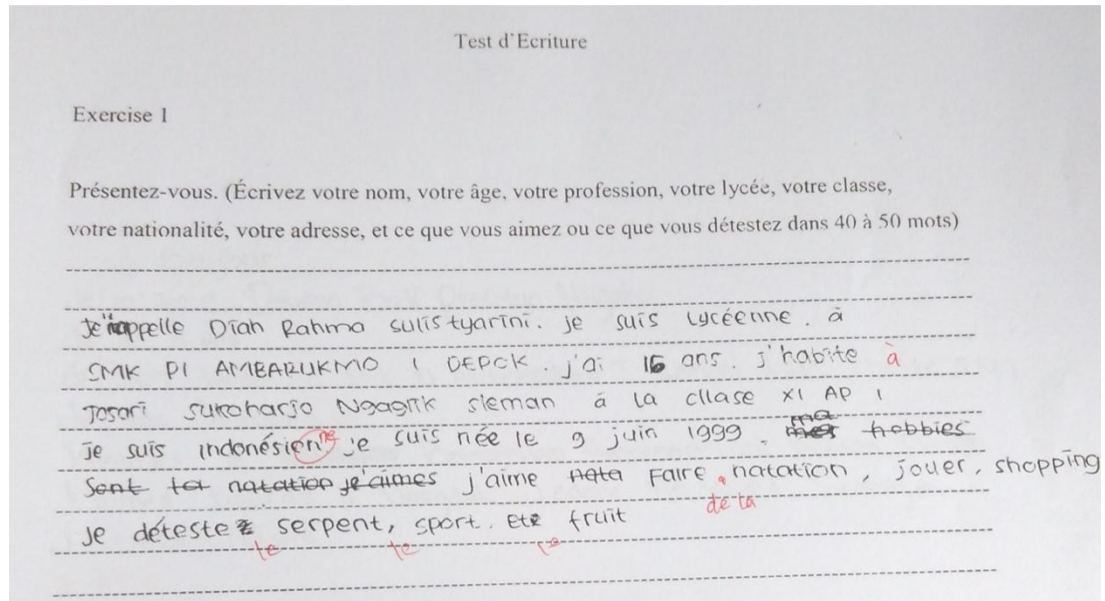 Test d'Ecriture
Exercise 1
Présentez-vous. (Écrivez votre nom, votre âge, votre profession, votre lycée, votre classe,
votre nationalité, votre adresse, et ce que vous aimez ou ce que vous détestez dans 40 à 50 mots)
Je m'appelle Diah Rahma sulistyarini. je suis lycéenne. à
SMK PI AMBARUKMO 1 DEPOK. j'ai 16 ans. j'habite à
Josari sukoharjo Ngaglik sleman à la cllase XI AP 1
je suis indonésienne je suis née le 9 juin 1999. ma hobbies
Sont natation je aimes j'aime Faire natation, jouer, shopping
de la
Je déteste serpent, sport. et fruit
le le le